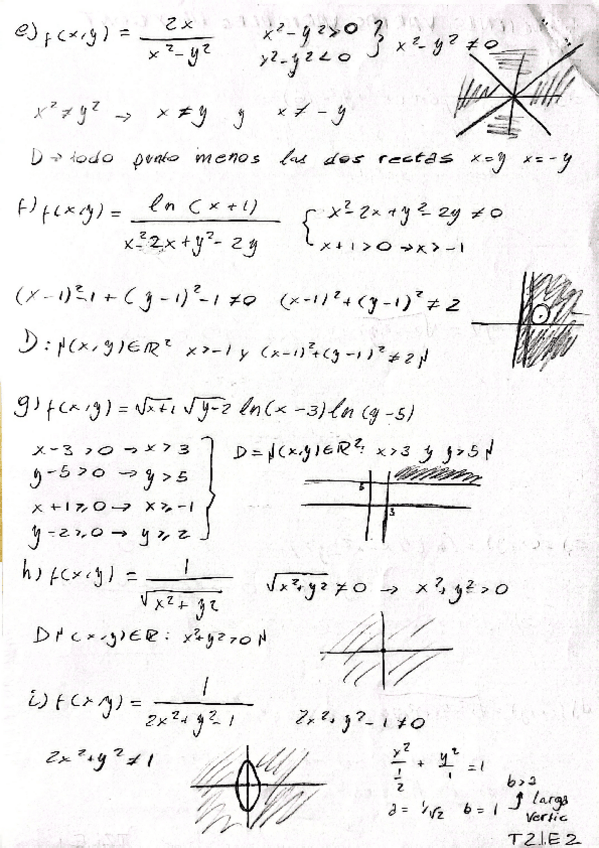 e) f(x,y) = 2x / x²-y²   x²-y²>0 } x²-y² ≠ 0
x²-y²<0
x² ≠ y² → x ≠ y   y   x ≠ -y
D → todo punto menos las dos rectas x=y x=-y
f) f(x,y) = ln(x+1) / x²-2x+y²-2y   { x²-2x+y²-2y ≠ 0
x+1>0 → x>-1
(x-1)²-1 + (y-1)²-1 ≠ 0   (x-1)²+(y-1)² ≠ 2
D: {(x,y)∈ℝ² x>-1 y (x-1)²+(y-1)² ≠ 2}
g) f(x,y) = √x+1 √y-2 ln(x-3) ln(y-5)
x-3>0 → x>3   D = {(x,y)∈ℝ²: x>3 y y>5}
y-5>0 → y>5
x+1≥0 → x≥-1
y-2≥0 → y≥2
5
3
h) f(x,y) = 1 / √x²+y²   √x²+y² ≠ 0 → x²+y²>0
D {(x,y)∈ℝ: x²+y²>0}
i) f(x,y) = 1 / 2x²+y²-1   2x²+y²-1 ≠ 0
2x²+y² ≠ 1   x² / 1/2 + y² / 1 = 1
a = 1/√2   b = 1   b>a
↑ larga
vertic
T2|.E2